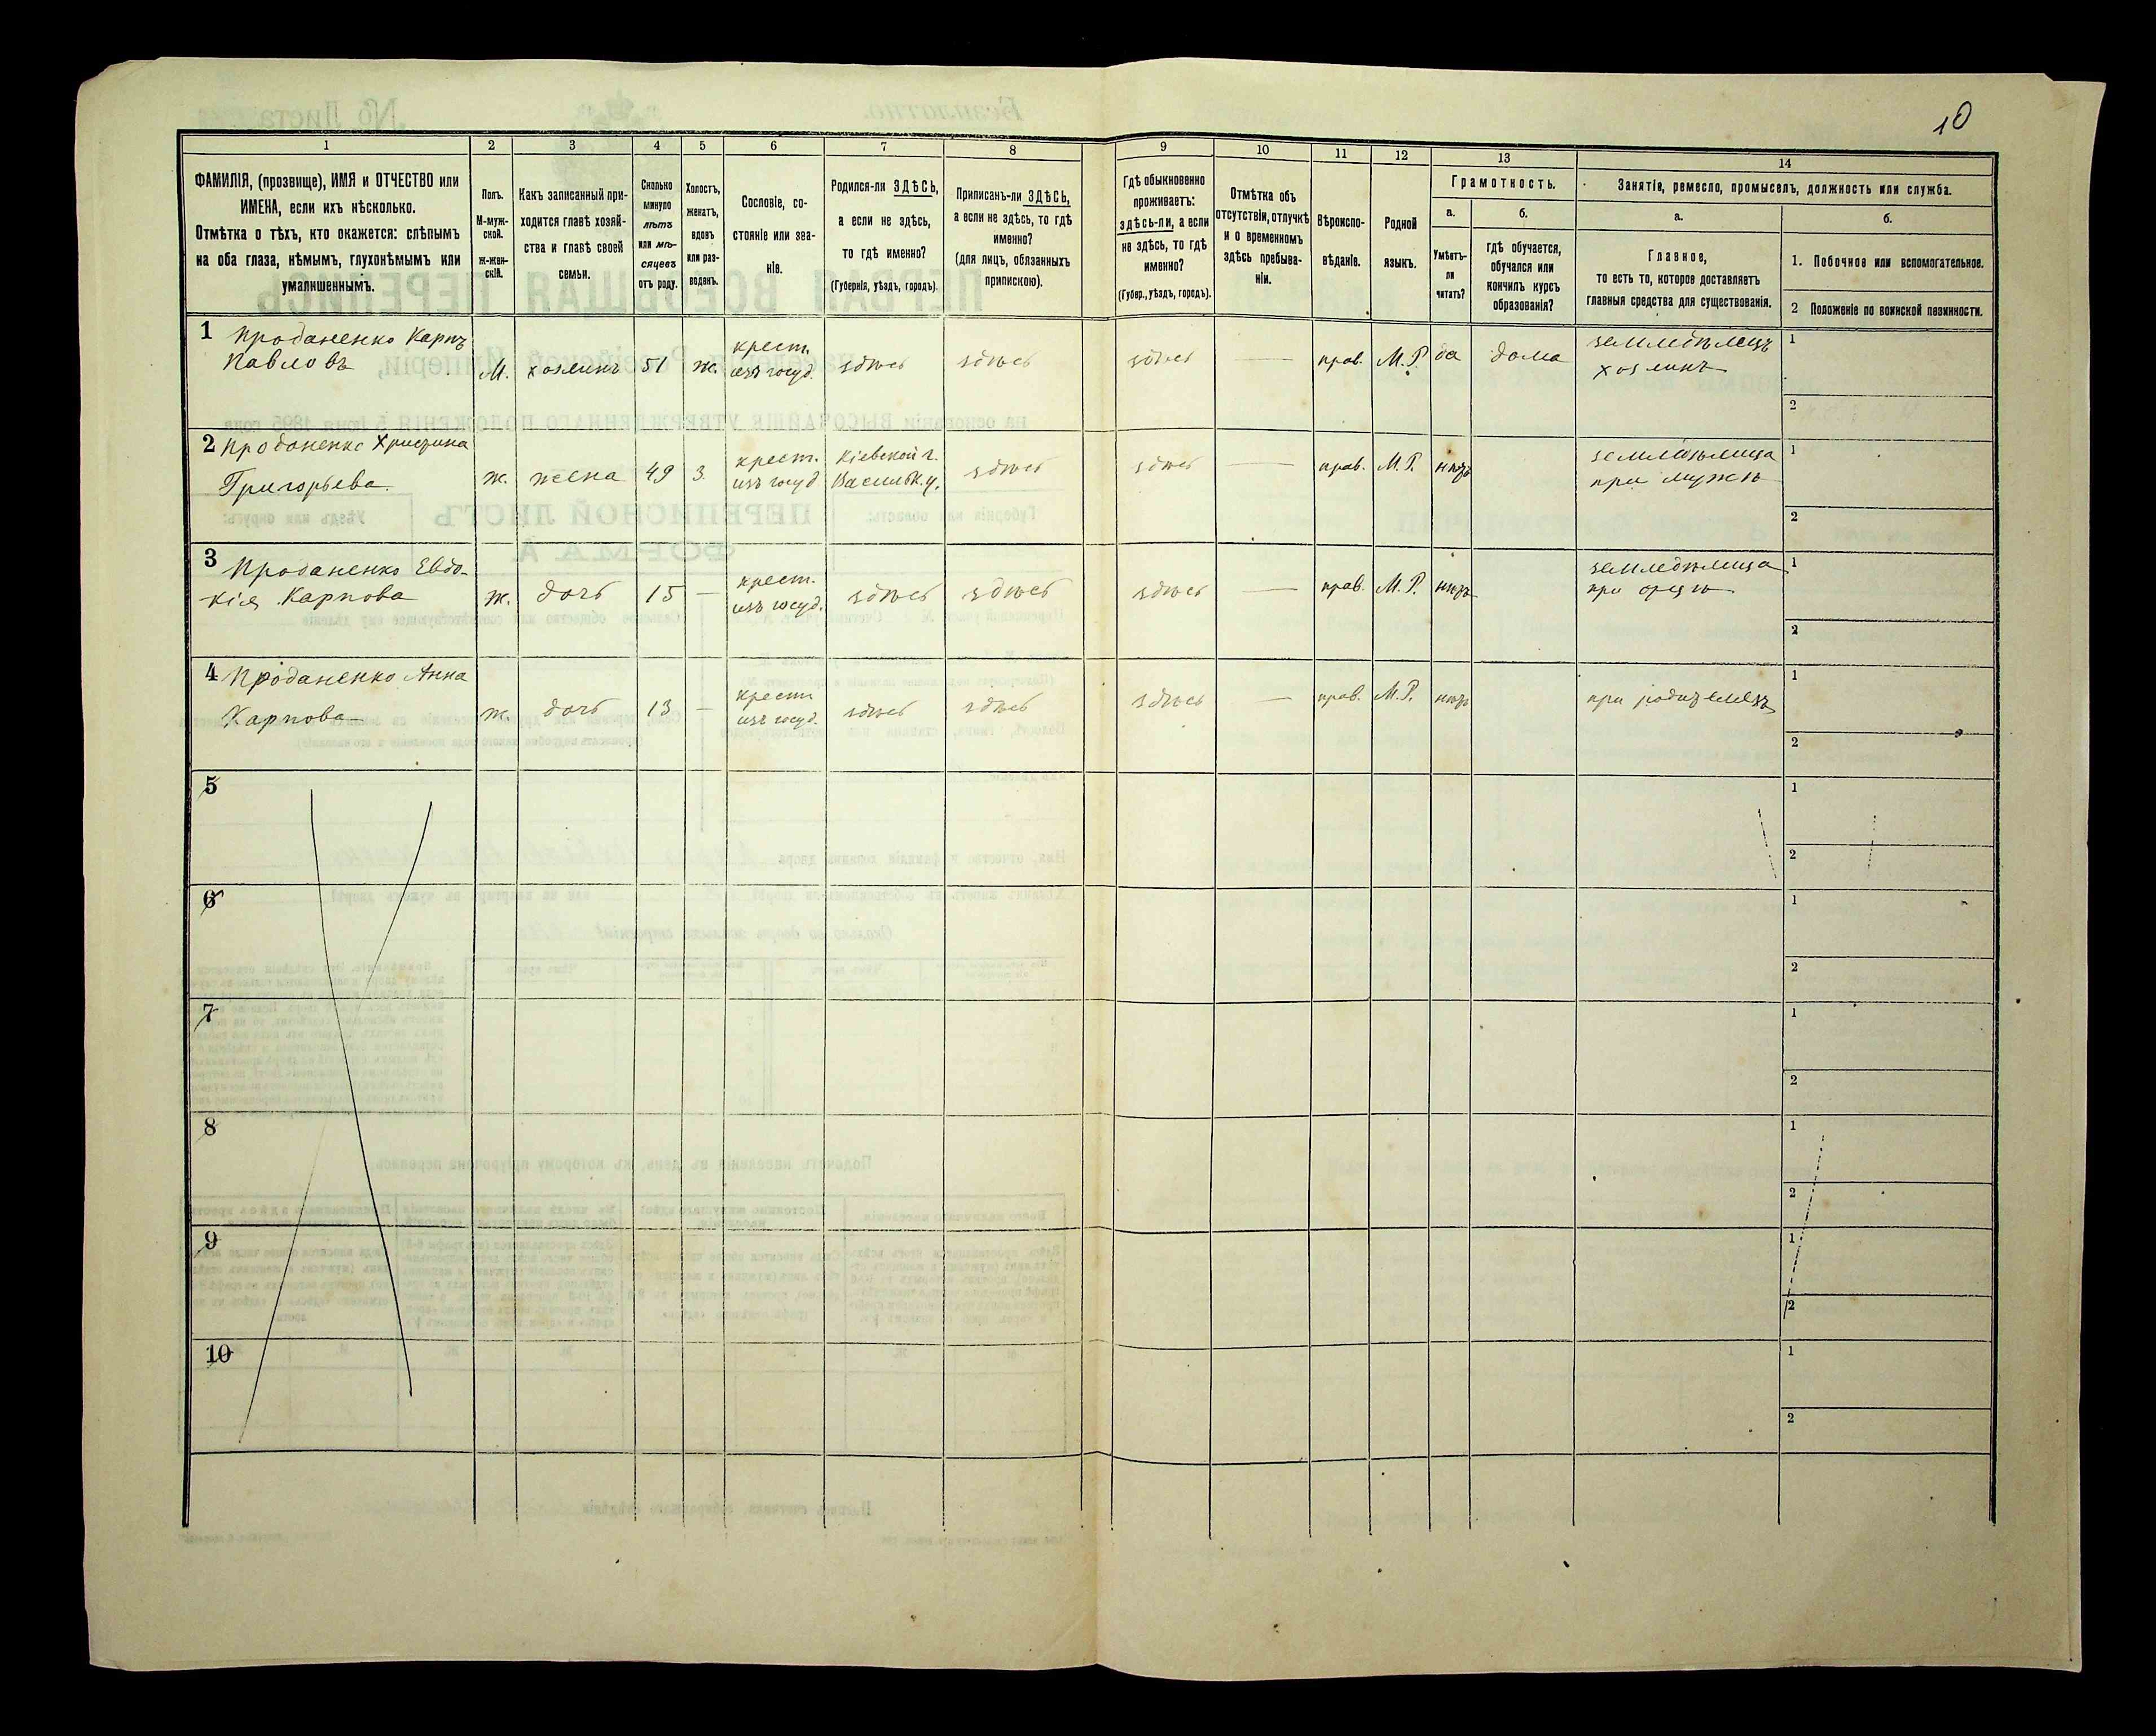 10
1
2
3
4
5
6
7
8
9
10
11
12
13
14
ФАМИЛІЯ, (прозвище), ИМЯ и ОТЧЕСТВО или
ИМЕНА, если ихъ нѣсколько.
Отмѣтка о тѣхъ, кто окажется: слѣпымъ
на оба глаза, нѣмымъ, глухонѣмымъ или
умалишеннымъ.
Полъ.
М-муж-
ской.
ж-жен-
скій.
Какъ записанный при-
ходится главѣ хозяй-
ства и главѣ своей
семьи.
Сколько
минуло
лѣтъ
или мѣ-
сяцевъ
отъ роду.
Холостъ,
женатъ,
вдовъ
или раз-
веденъ.
Сословіе, со-
стояніе или зва-
ніе.
Родился-ли ЗДѢСЬ,
а если не здѣсь,
то гдѣ именно?
(Губернія, уѣздъ, городъ).
Приписанъ-ли ЗДѢСЬ,
а если не здѣсь, то гдѣ
именно?
(для лицъ, обязанныхъ
припискою).
Гдѣ обыкновенно
проживаетъ:
здѣсь-ли, а если
не здѣсь, то гдѣ
именно?
(Губер., уѣздъ, городъ).
Отмѣтка объ
отсутствіи, отлучкѣ
и о временномъ
здѣсь пребыва-
ніи.
Вѣроиспо-
вѣданіе.
Родной
языкъ.
Грамотность.
а.
Умѣетъ-
ли
читать?
б.
гдѣ обучается,
обучался или
кончилъ курсъ
образованія?
Занятіе, ремесло, промыселъ, должность или служба.
а.
Главное,
то есть то, которое доставляетъ
главныя средства для существованія.
б.
1. Побочное или вспомогательное.
2 Положеніе по воинской повинности.
1 Проданенко Карпъ
Павловъ
М.
хозяинъ
51
ж.
крест.
изъ госуд.
здѣсь
здѣсь
здѣсь
прав.
М.Р.
да
дома
земледѣлецъ
хозяинъ
1
2
2 Проданенко Христина
Григорьева
ж.
жена
49
з.
крест.
изъ госуд
Кіевской г.
Васильк. у.
здѣсь
здѣсь
прав.
М.Р.
нѣтъ
земледѣлица
при мужѣ
1
2
3 Проданенко Евдо-
кія Карпова
ж.
дочь
15
крест.
изъ госуд.
здѣсь
здѣсь
здѣсь
прав.
М.Р.
нѣтъ
земледѣлица
при отцѣ
1
2
4 Проданенко Анна
Карпова
ж.
дочь
13
крест
изъ госуд.
здѣсь
здѣсь
здѣсь
прав.
М.Р.
нѣтъ
при родителяхъ
1
2
5
1
2
6
1
2
7
1
2
8
1
2
9
1
2
10
1
2